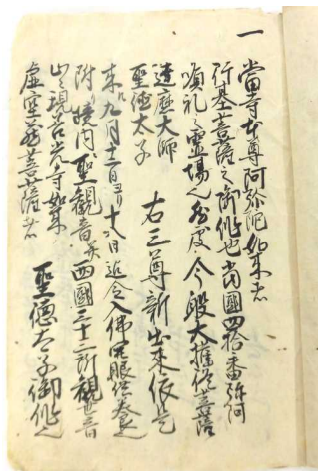 一 當寺本尊阿弥陀如来者
行基菩薩之御作也當國四拾番弥陀
順礼之霊場也 今般大権化菩薩
達磨大師
聖徳太子 右三尊新出来依之
来ル九月十二日ヨリ十八日迄令入佛開眼供養
附境内聖観音 西國三十三所観世音
山之現 善光寺如来
虚空蔵菩薩者 聖徳太子御作也